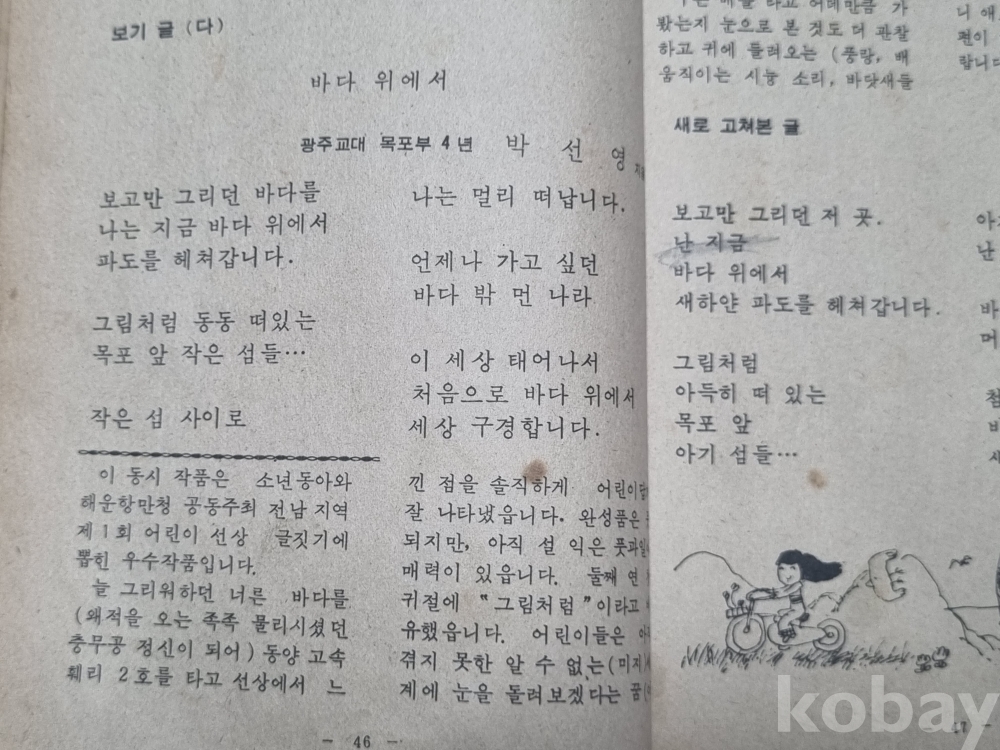 보기 글 (다)
바다 위에서
광주교대 목포부 4년 박 선 영
보고만 그리던 바다를
나는 지금 바다 위에서
파도를 헤쳐갑니다.
그림처럼 동동 떠있는
목포 앞 작은 섬들…
작은 섬 사이로
나는 멀리 떠납니다.
언제나 가고 싶던
바다 밖 먼 나라
이 세상 태어나서
처음으로 바다 위에서
세상 구경합니다.
이 동시 작품은 소년동아와
해운항만청 공동주최 전남 지역
제1회 어린이 선상 글짓기에
뽑힌 우수작품입니다.
늘 그리워하던 너른 바다를
(왜적을 오는 족족 물리시셨던
충무공 정신이 되어) 동양 고속
훼리 2호를 타고 선상에서 느
낀 점을 솔직하게
잘 나타냈읍니다. 완성품은
되지만, 아직 설 익은
매력이 있읍니다. 둘째 연
귀절에 "그림처럼"이라고
유했읍니다. 어린이들은
겪지 못한 알 수 없는 (미지
계에 눈을 돌려보겠다는 꿈
- 46 -
봤는지 눈으로 본 것도 더 관찰
하고 귀에 들려오는 (풍랑, 배
움직이는 시늉 소리, 바닷새들
니 애
편이
랍니다
새로 고쳐본 글
보고만 그리던 저 곳.
난 지금
바다 위에서
새하얀 파도를 헤쳐갑니다.
그림처럼
아득히 떠 있는
목포 앞
아기 섬들…
난
kobay